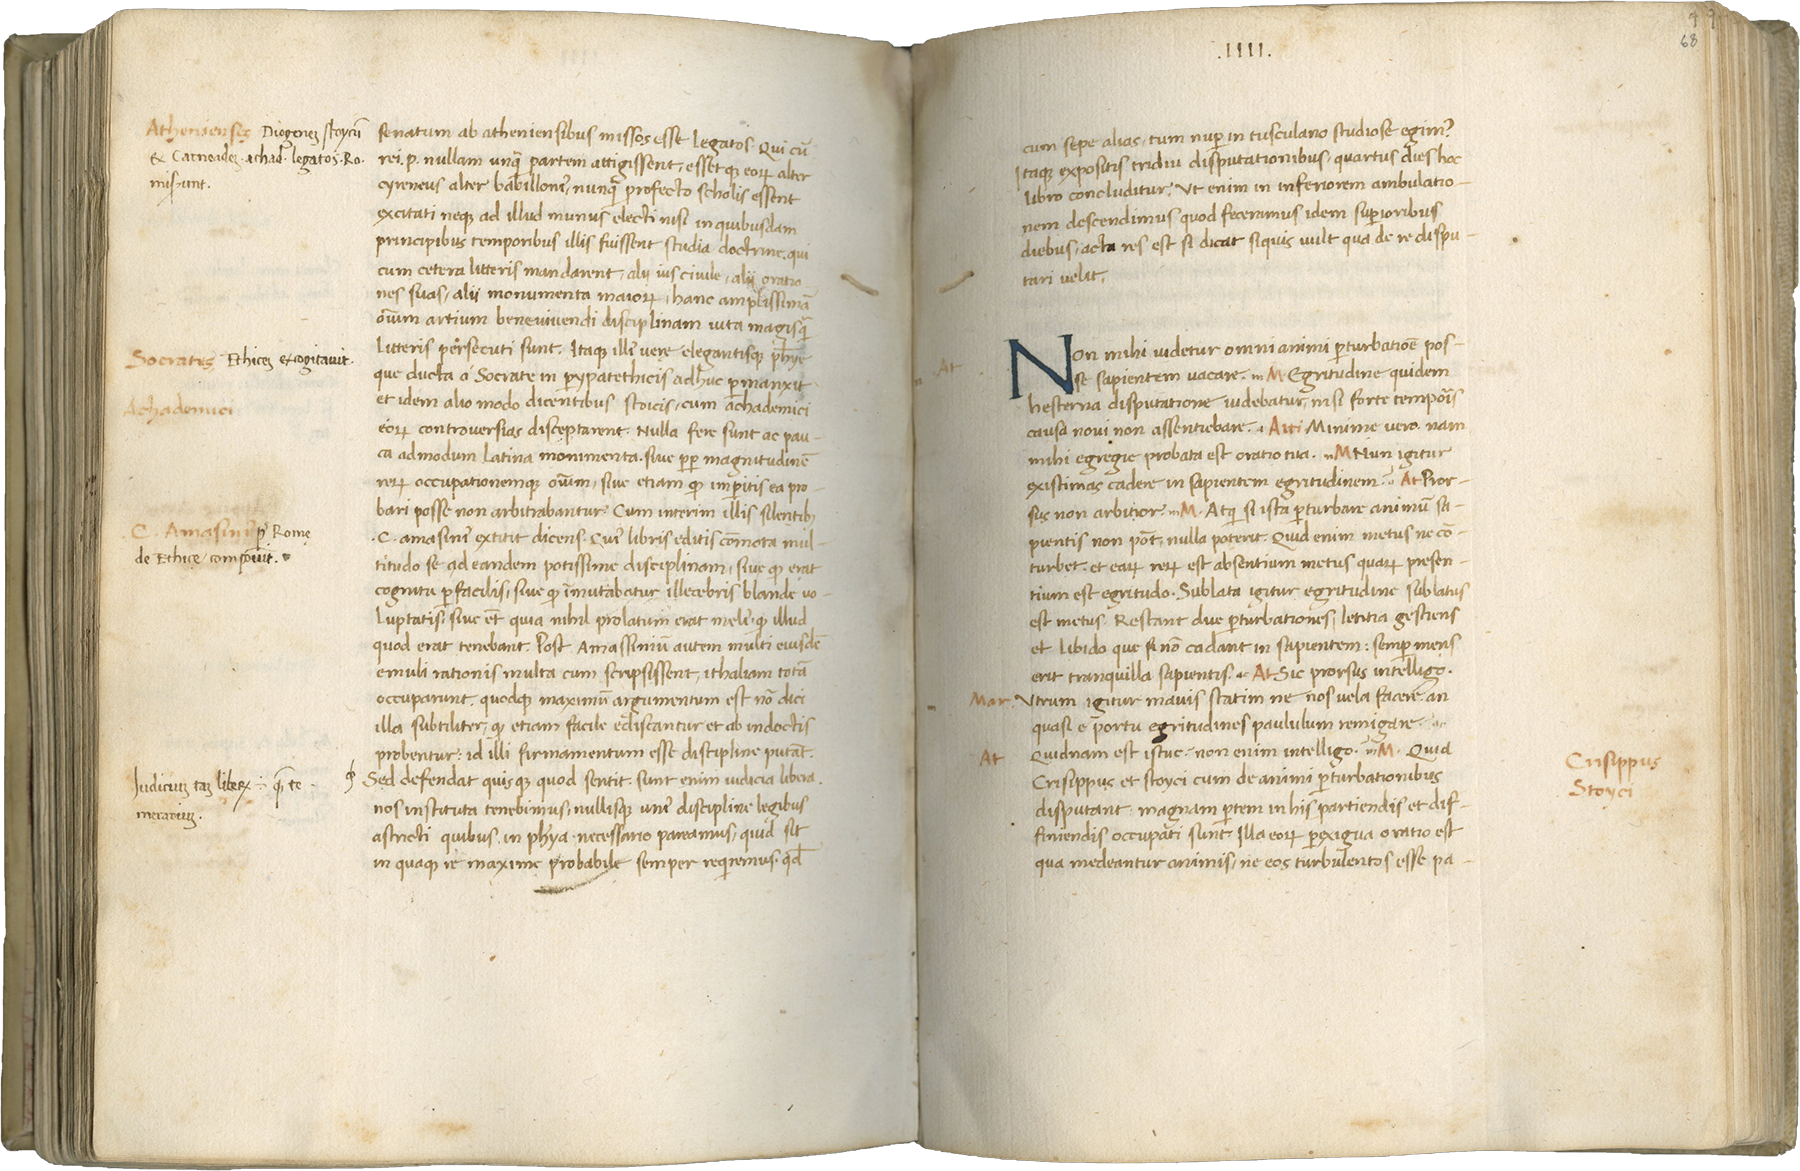 Athenienses Diogenez stoycū
& Carneadez achad. legatos. Ro.
miserunt.
senatum ab atheniensibus missos esse legatos. Qui cū
rei. p. nullam unq̄ partem attigissent, essetq; eoꝝ alter
cyreneus alter babilloni⁹, nunq̄ profecto scholis essent
excitati neq; ad illud munus electi nisi in quibusdam
principibus temporibus illis fuissent studia doctrine. qui
cum cetera litteris mandarent, alij ius ciuile, alij oratio
nes suas, alij monumenta maioꝝ, hanc amplissimā
oīum artium bene uiuendi disciplinam uita magisq̄
Socrates Ethicen excogitauit.
litteris persecuti sunt. Itaq; illi⁹ uere elegantisq; ph̄ye
que ducta a Socrate in perypatethicis adhuc permanxit
Achademici
et idem alio modo dicentibus stoicis, cum achademici
eoꝝ controuersias disceptarent. Nulla fere sunt ac pau-
ca admodum latina monimenta. siue ꝓpter magnitudinē
reꝝ occupationemq; oīum, siue etiam qꝫ imperitis ea pro-
bari posse non arbitrabantur. Cum interim illis silentibꝫ
C. Amasini⁹ pr⁹ Rome
de Ethice composuit.
.C. amasini⁹ extitit dicens. Cui⁹ libris editis cōmota mul-
titudo se ad eandem potissime disciplinam, siue qꝫ erat
cognitu perfacilis, siue qꝫ īmutabatur illecebris blande uo-
luptatis, siue ēt quia nihil prolatum erat meli⁹, qꝫ illud
quod erat tenebant. Post Amassiniū autem multi eiusdē
emuli rationis multa cum scripsissent, ithaliam totā
occuparunt. quodq; maximū argumentum est nō dici
illa subtiliter, qꝫ etiam facile ediscantur et ab indoctis
probentur: id illi firmamentum esse discipline putāt.
Judicium
Sed defendat quisq; quod sentit. sunt enim iudicia libera.
nos instituta tenebimus, nullisq; uni⁹ discipline legibus
astricti quibus in ph̄ya necessario pareamus, quid sit
in quaq; re maxime probabile semper requiremus. qd̄
.IIII.
68
cum sepe alias, tum nuper in tusculano studiose egim⁹
Itaq; expositis tridui disputationibus, quartus dies hoc
libro concluditur. Vt enim in inferiorem ambulatio-
nem descendimus quod feceramus idem superioribus
diebus, acta res est si dicat siquis uult qua de re dispu-
tari uelit.
At
Non mihi uidetur omni animi perturbatiōe pos-
se sapientem uacare. M Egritudine quidem
hesterna disputatione uidebatur, nisi forte temporis
causa noui non assentiebare. Atti Minime uero. nam
mihi egregie probata est oratio tua. M Nun igitur
existimas cadere in sapientem egritudinem? At Pror-
sus non arbitror. M. Atqui si ista perturbare animū sa-
pientis non pōt, nulla poterit. Quid enim metus ne cō-
turbet. et eaꝝ reꝝ est absentium metus quaꝝ presen-
tium est egritudo. Sublata igitur egritudine sublatus
est metus. Restant due perturbationes, letitia gestiens
et libido que si nō cadant in sapientem: semper mens
erit tranquilla sapientis. At Sic prorsus intelligo.
Mar. Vtrum igitur mauis statim ne nos uela facere an
quasi e portu egritudines paululum remigare.
At Quidnam est istuc? non enim intelligo. M. Quia
Crisippus
Stoyci
Crisippus et stoyci cum de animi perturbationibus
disputant. magnam partem in his partiendis et dif-
finiendis occupati sunt. Illa eoꝝ perexigua oratio est
qua medeantur animis, ne eos turbulentos esse pa-